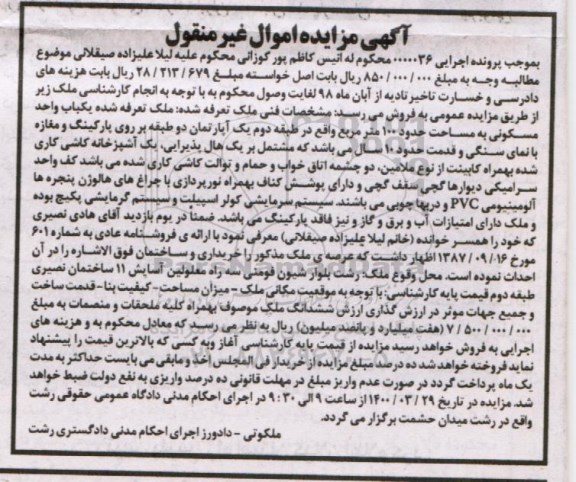 آگهی مزایده اموال غیر منقول
بموجب پرونده اجرایی ۰۰۰۰۳۶ محکوم له انیس کاظم پور کوزانی محکوم علیه لیلا علیزاده صیقلانی موضوع
مطالبه وجه به مبلغ ۸۵۰/۰۰۰/۰۰۰ ریال بابت اصل خواسته مبلغ ۲۸/۲۱۳/۶۷۹ ریال بابت هزینه های
دادرسی و خسارت تاخیر تادیه از آبان ماه ۹۸ لغایت وصول محکوم به با توجه به انجام کارشناسی ملک زیر
از طریق مزایده عمومی به فروش می رسد: مشخصات فنی ملک تعرفه شده: ملک تعرفه شده یکباب واحد
مسکونی به مساحت حدود ۱۰۰ متر مربع واقع در طبقه دوم یک آپارتمان دو طبقه بر روی پارکینگ و مغازه
با نمای سنگی و قدمت حدود ۱۰ سال می باشد که مشتمل بر یک هال پذیرایی، یک آشپزخانه کاشی کاری
شده بهمراه کابینت از نوع ملامین، دو چشمه اتاق خواب و حمام و توالت کاشی کاری شده می باشد کف واحد
سرامیکی دیوارها گچی سقف گچی و دارای پوشش کناف بهمراه نورپردازی با چراغ های هالوژن پنجره ها
آلومینیومی PVC و دربها چوبی می باشند. سیستم سرمایشی کولر اسپیلت و سیستم گرمایشی پکیج بوده
و ملک دارای امتیازات آب و برق و گاز و نیز فاقد پارکینگ می باشد. ضمناً در یوم بازدید آقای هادی نصیری
که خود را همسر خوانده (خانم لیلا علیزاده صیقلانی) معرفی نمود با ارائه ی فروشنامه عادی به شماره ۶۰۱
مورخ ۱۳۸۷/۰۹/۱۶ اظهار داشت که عرصه ی ملک مذکور را خریداری و ساختمان فوق الاشاره را در آن
احداث نموده است. محل وقوع ملک: رشت بلوار شیون فومنی سه راه معلولین آسایش ۱۱ ساختمان نصیری
طبقه دوم قیمت پایه کارشناسی: با توجه به موقعیت مکانی ملک - میزان مساحت- کیفیت بنا- قدمت ساخت
و جمیع جهات موثر در ارزش گذاری ارزش ششدانگ ملک موصوف بهمراه کلیه ملحقات و منصمات به مبلغ
۷/۵۰۰/۰۰۰/۰۰۰ (هفت میلیارد و پانصد میلیون) ریال به نظر می رسد که معادل محکوم به و هزینه های
اجرایی به فروش خواهد رسید مزایده از قیمت پایه کارشناسی آغاز و به کسی که بالاترین قیمت را پیشنهاد
نماید فروخته خواهد شد ده درصد مبلغ مزایده از خریدار فی المجلس اخذ و مابقی می بایست حداکثر به مدت
یک ماه پرداخت گردد در صورت عدم واریز مبلغ در مهلت قانونی ده درصد واریزی به نفع دولت ضبط خواهد
شد. مزایده در تاریخ ۱۴۰۰/۰۳/۲۹ از ساعت ۹ الی ۹:۳۰ در اجرای احکام مدنی دادگاه عمومی حقوقی رشت
واقع در رشت میدان حشمت برگزار می گردد.
ملکوتی - دادورز اجرای احکام مدنی دادگستری رشت